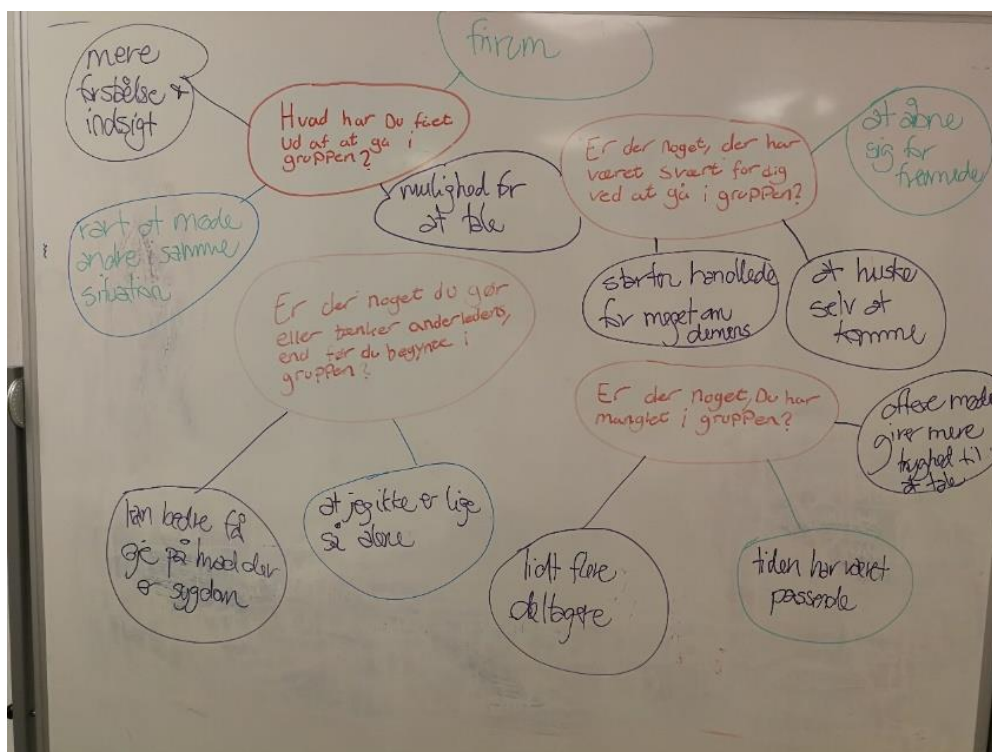 mere
forståelse +
indsigt
frirum
Hvad har Du fået
ud af at gå i
gruppen?
rart at møde
andre i samme
situation
mulighed for
at tale
Er der noget, der har
været svært for dig
ved at gå i gruppen?
at åbne
sig for
fremmede
starten handlede
for meget om
demens
at huske
selv at
komme
Er der noget du gør
eller tænker anderledens,
end før du begynte i
gruppen?
kan bedre få
øje på hvad der
er sygdom
at jeg ikke er lige
så alene
Er der noget, Du har
manglet i gruppen?
oftere møde
giver mere
tryghed til
at tale
lidt flere
deltagere
tiden har været
passende